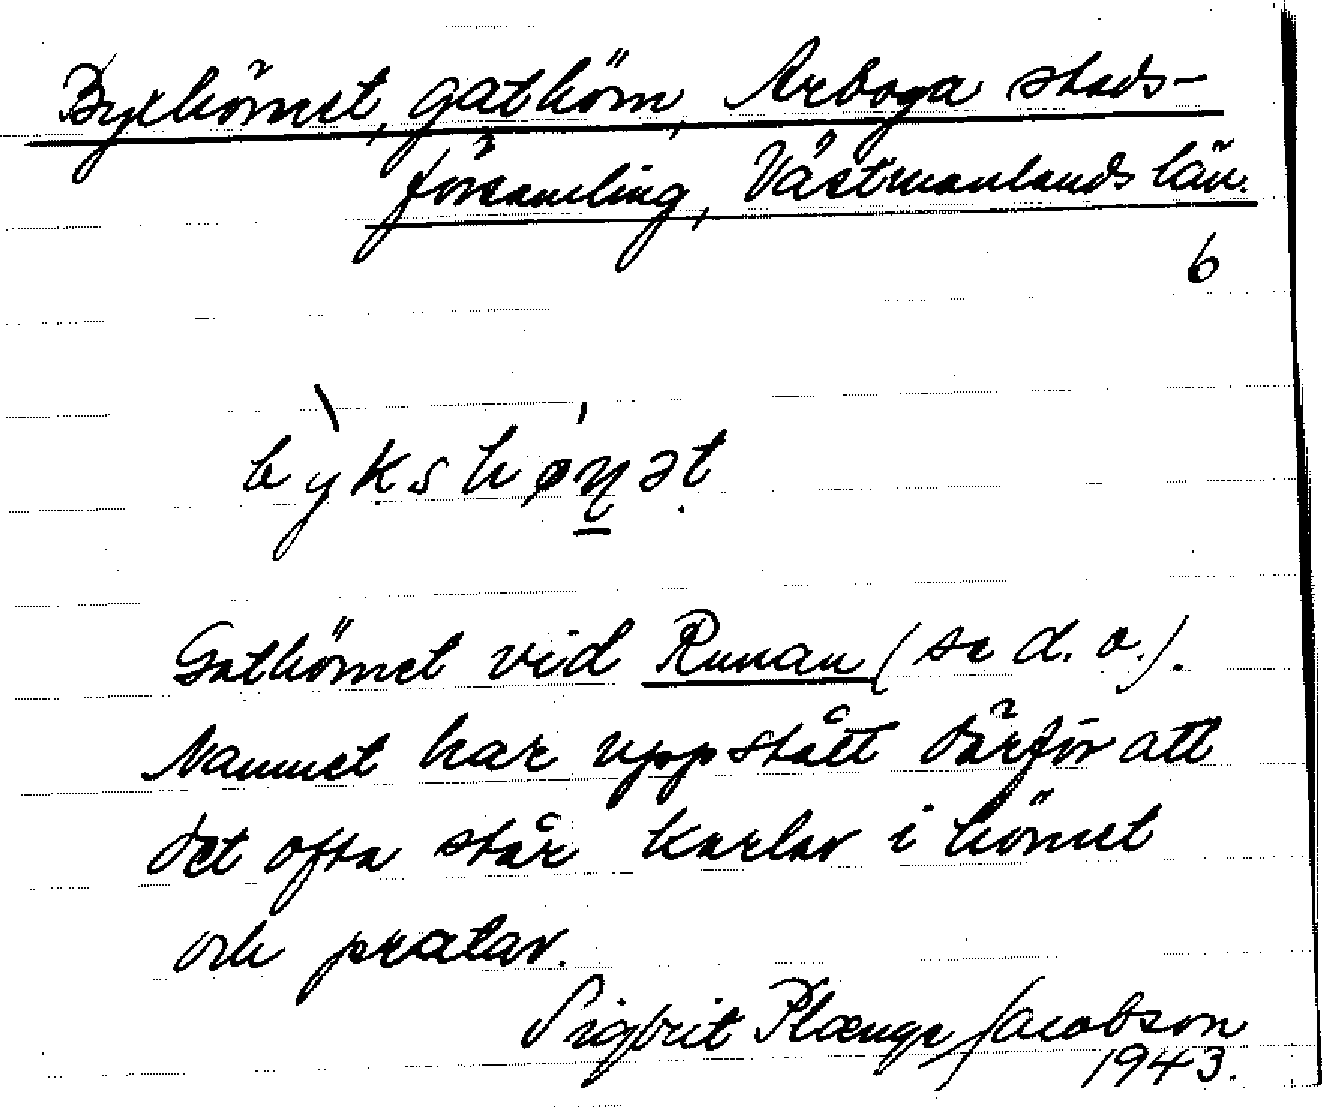 Byxhörnet, gathörn, Arboga stads-
församling, Västmanlands län.
6
bỳkshǿ̣ṇət
Gathörnet vid Runan (se d. o.).
Namnet har uppstått därför att
det ofta står karlar i hörnet
och pratar.
Sigbrit Plænge Jacobson
1943.